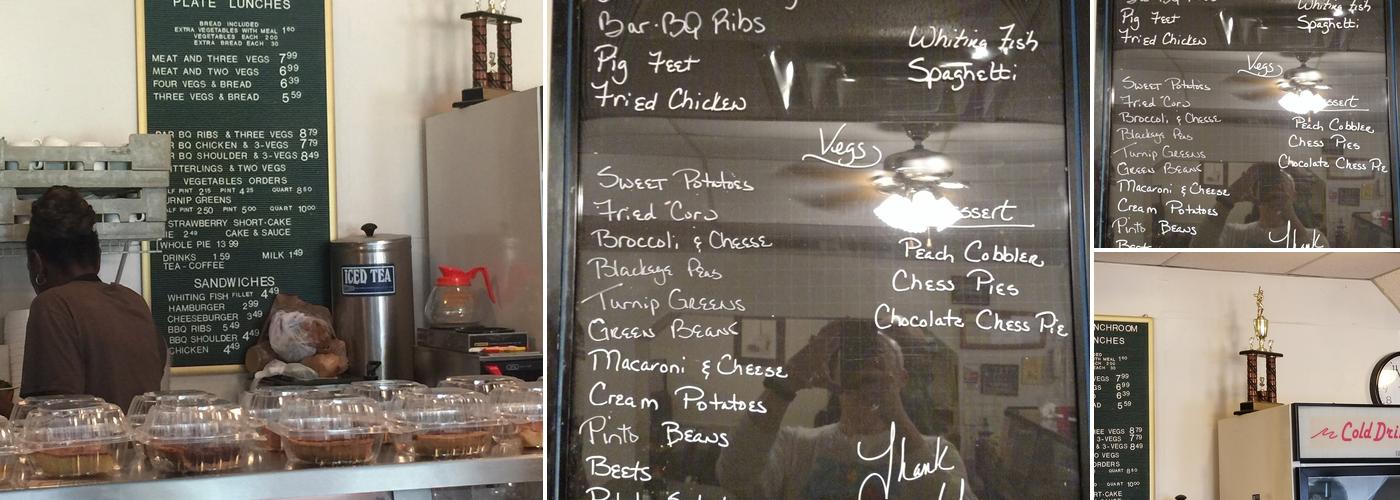 PLATE LUNCHES
BREAD INCLUDED
EXTRA VEGETABLES WITH MEAL 1⁶⁰
VEGETABLES EACH 2 00
EXTRA BREAD EACH 30
MEAT AND THREE VEGS 7⁹⁹
MEAT AND TWO VEGS 6⁹⁹
FOUR VEGS & BREAD 6³⁹
THREE VEGS & BREAD 5⁵⁹
BAR BQ RIBS & THREE VEGS 8⁷⁹
BQ CHICKEN & 3-VEGS 7⁷⁹
BQ SHOULDER & 3-VEGS 8⁴⁹
TTERLINGS & TWO VEGS
VEGETABLES ORDERS
LF PINT 2¹⁵ PINT 4²⁵ QUART 8⁵⁰
TURNIP GREENS
LF PINT 2⁵⁰ PINT 5⁰⁰ QUART 10⁰⁰
STRAWBERRY SHORT-CAKE
PIE 2⁴⁹ CAKE & SAUCE
WHOLE PIE 13 99
DRINKS 1 59 MILK 1⁴⁹
TEA-COFFEE
SANDWICHES
WHITING FISH FILLET 4⁴⁹
HAMBURGER 2⁹⁹
CHEESEBURGER 3⁴⁹
BBQ RIBS 5⁴⁹
BBQ SHOULDER 4⁴⁹
CHICKEN 4⁴⁹
ICED TEA
Bar-BQ Ribs
Pig Feet
Fried Chicken
Whiting Fish
Spaghetti
Vegs
Sweet Potatoes
Fried Corn
Broccoli & Cheese
Blackeye Peas
Turnip Greens
Green Beans
Macaroni & Cheese
Cream Potatoes
Pinto Beans
Beets
essert
Peach Cobbler
Chess Pies
Chocolate Chess Pie
Thank
Whiting Fish
Pig Feet
Spaghetti
Fried Chicken
Vegs
Sweet Potatoes
Fried Corn
Broccoli & Cheese
Blackeye Peas
Turnip Greens
Green Beans
Macaroni & Cheese
Cream Potatoes
Pinto Beans
Beets
essert
Peach Cobbler
Chess Pies
Chocolate Chess Pie
Thank
NCHROOM
NCHES
VEGS 7⁹⁹
VEGS 6⁹⁹
AD 6³⁹
AD 5⁵⁹
EE VEGS 8⁷⁹
3-VEGS 7⁷⁹
& 3-VEGS 8⁴⁹
O VEGS
ORDERS
QUART 8⁵⁰
QUART 10⁰⁰
RT-CAKE
Cold Dri